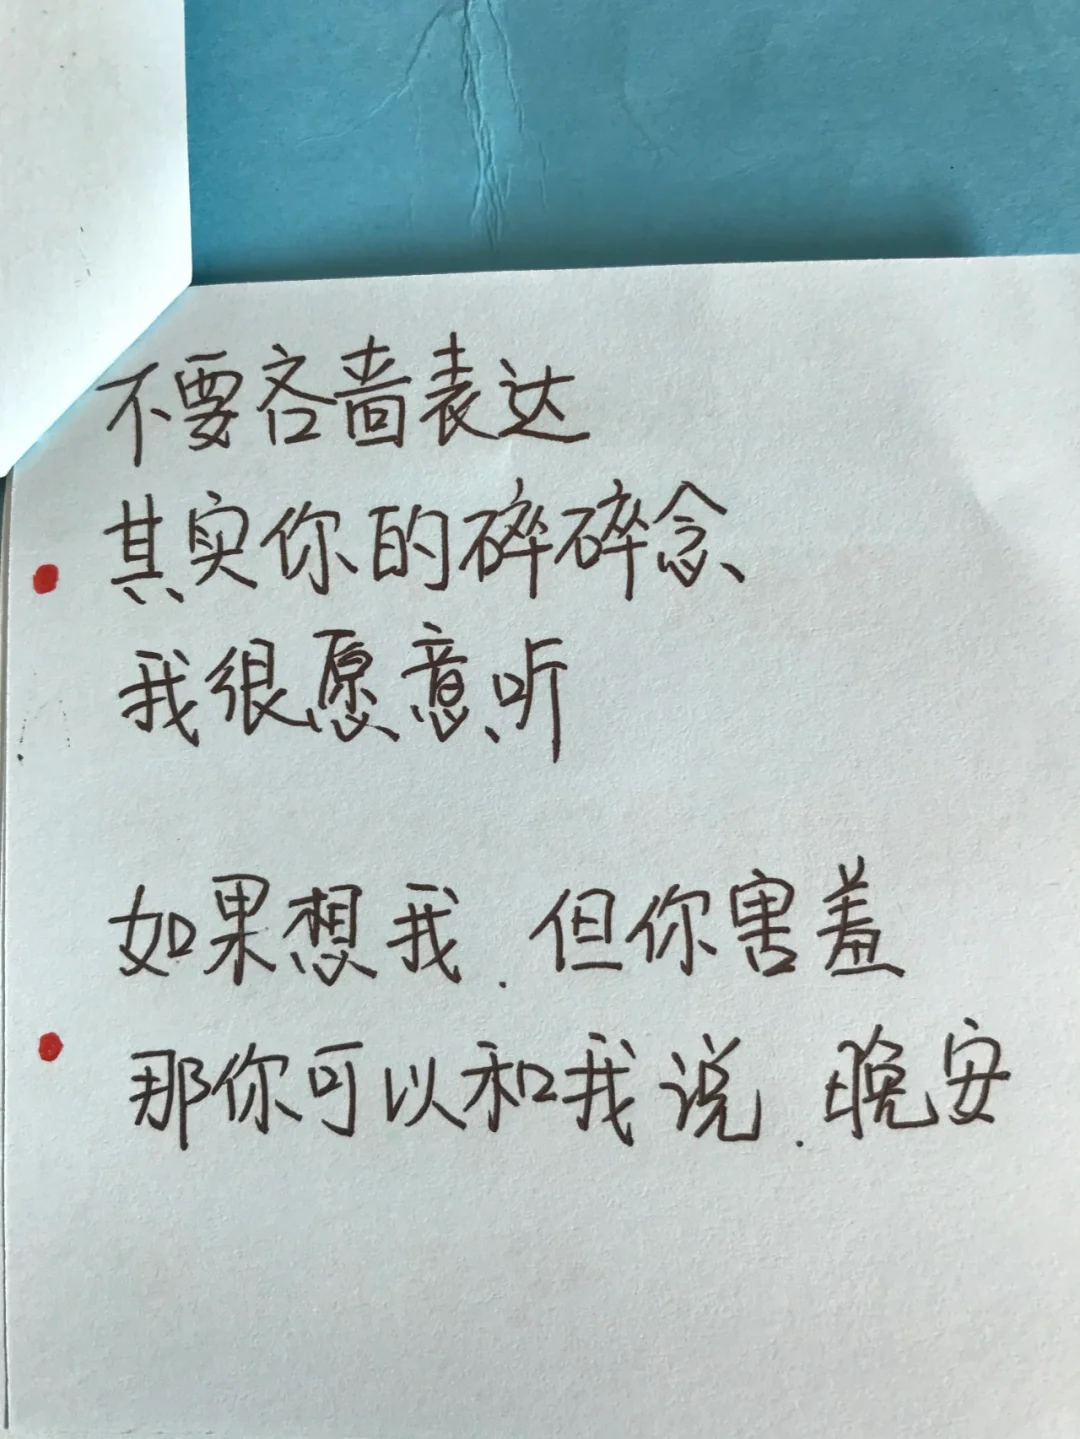 不要吝啬表达
其实你的碎碎念
我很愿意听
如果想我.但你害羞
那你可以和我说.晚安